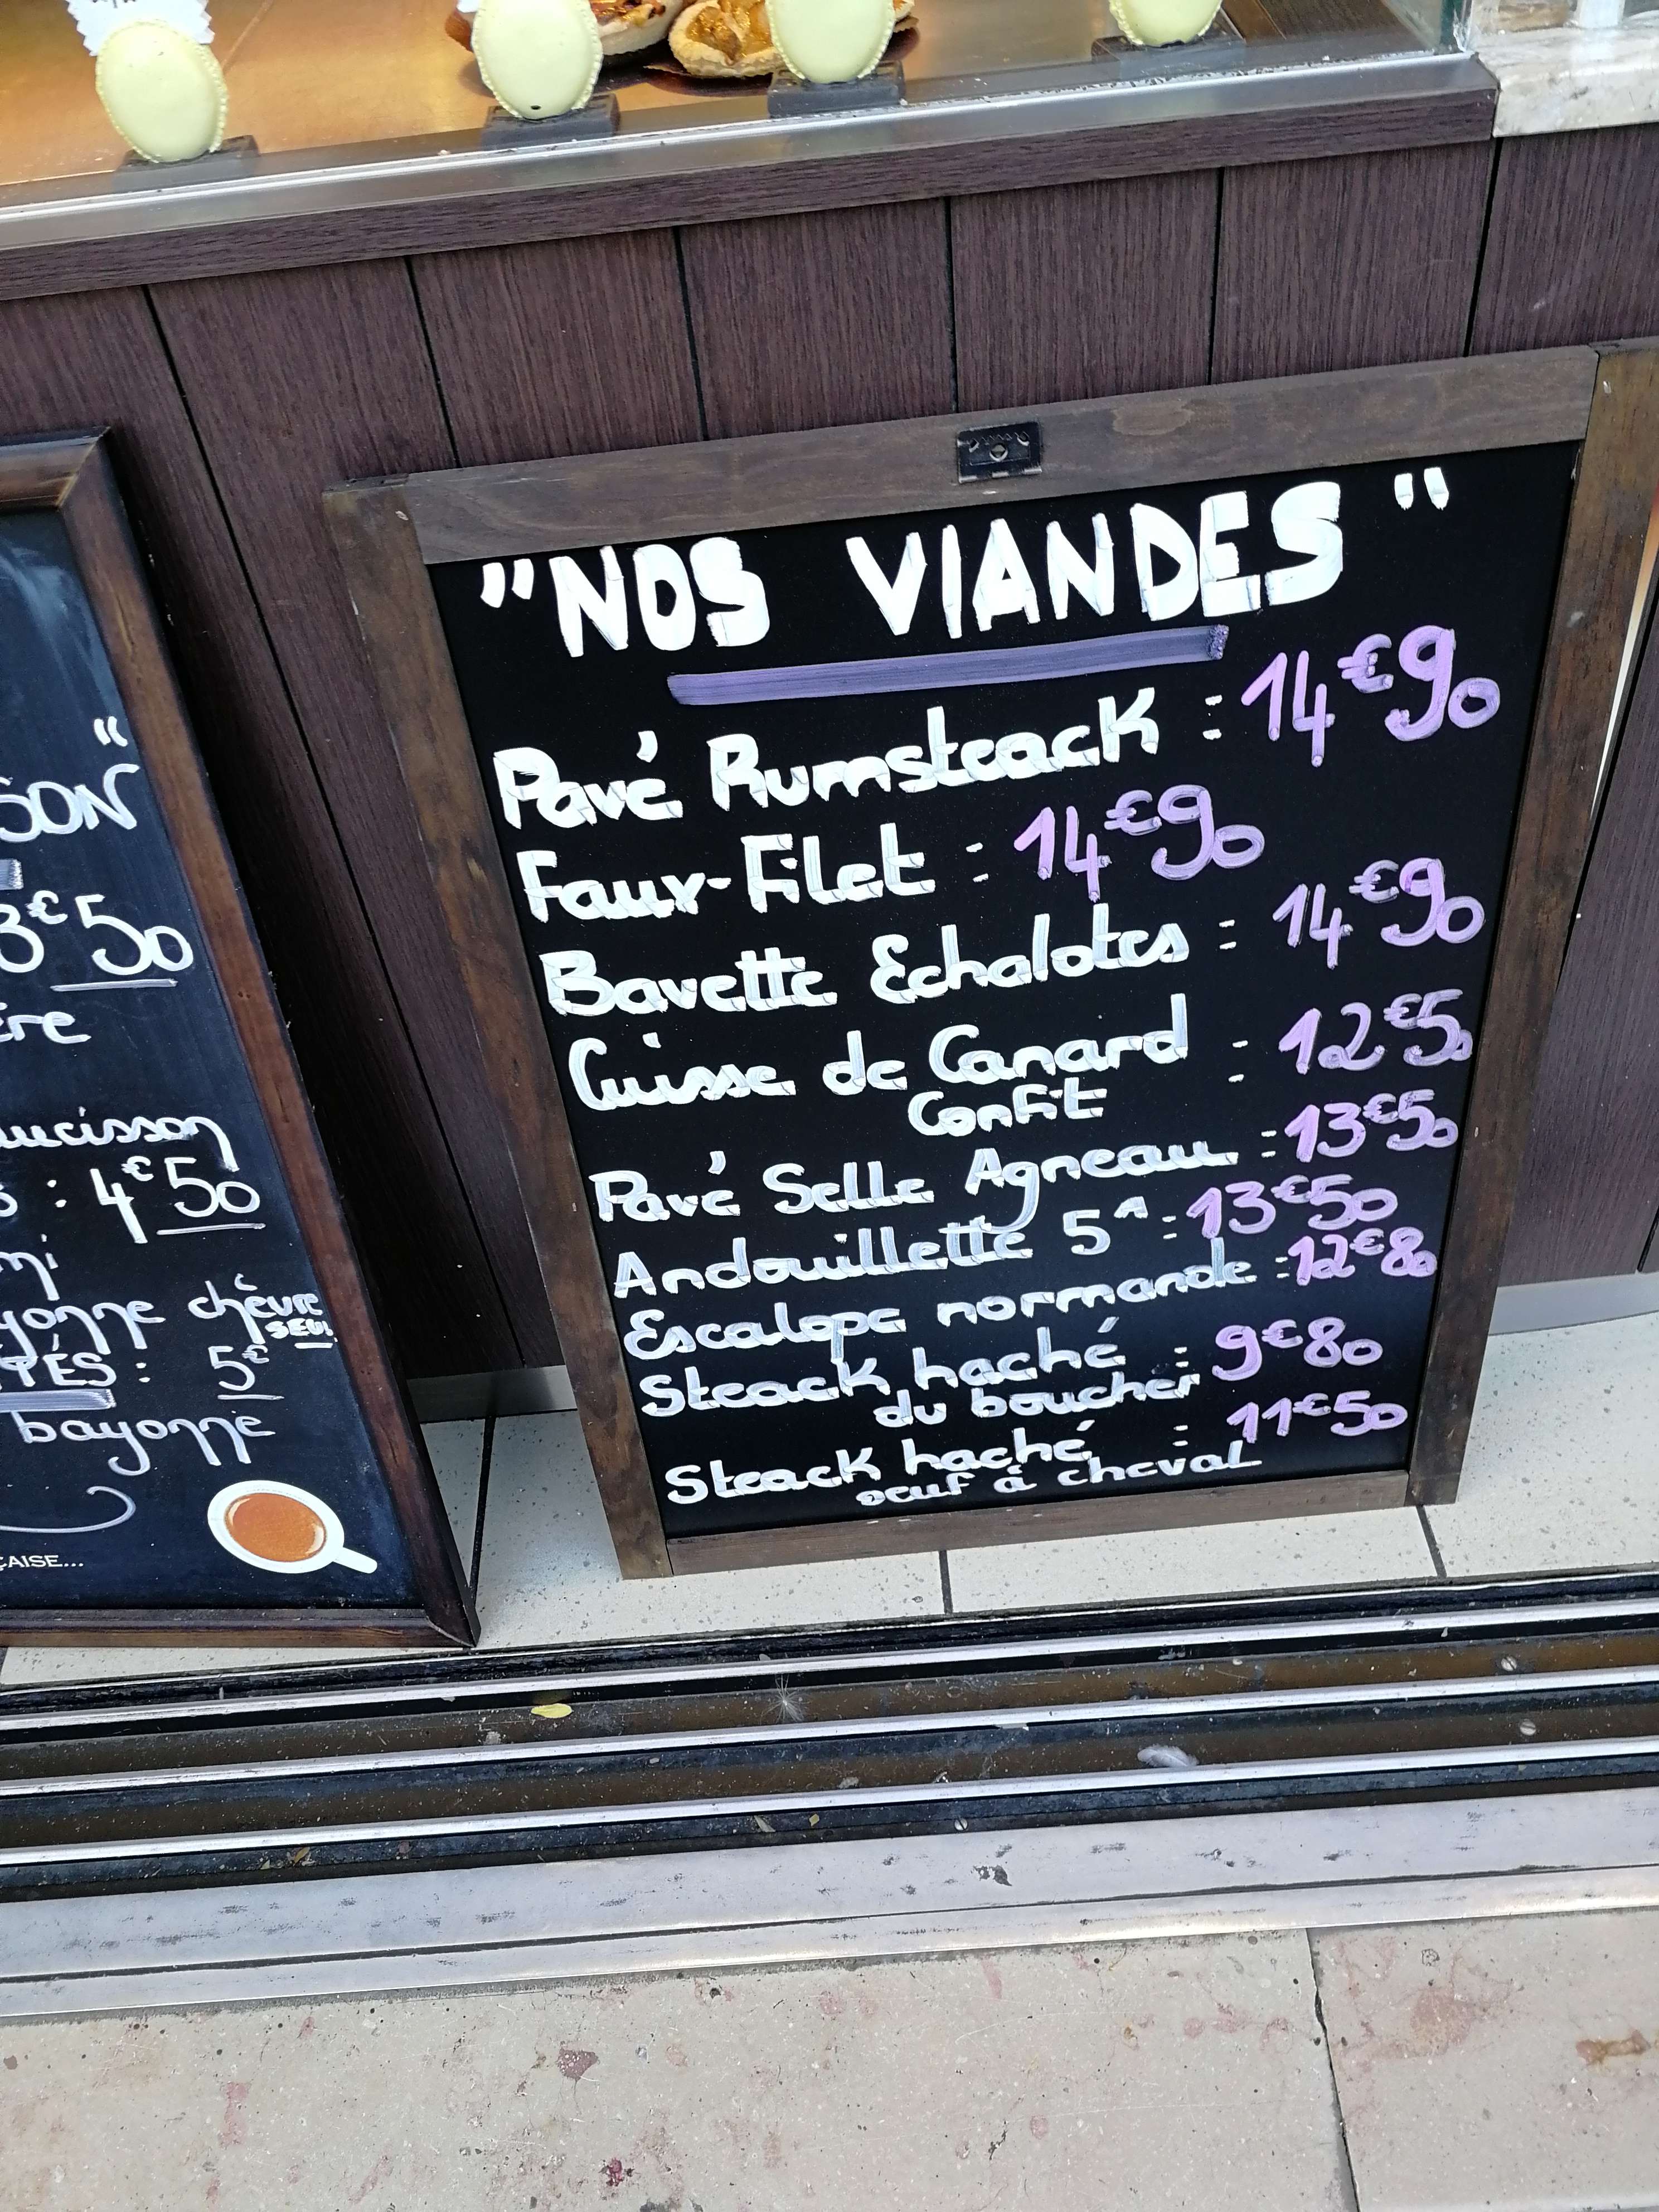 "NOS VIANDES"
Pavé Rumsteack : 14€90
Faux-Filet : 14€90
Bavette Echalotes : 14€90
Cuisse de Canard : 12€50
Confit
Pavé Selle Agneau : 13€50
Andouillette 5A : 13€50
Escalope normande : 12€80
Steack haché : 9€80
du boucher
Steack haché : 11€50
oeuf à cheval
"
3€50
: 4€50
chèvre
SEUL
: 5€
bayonne